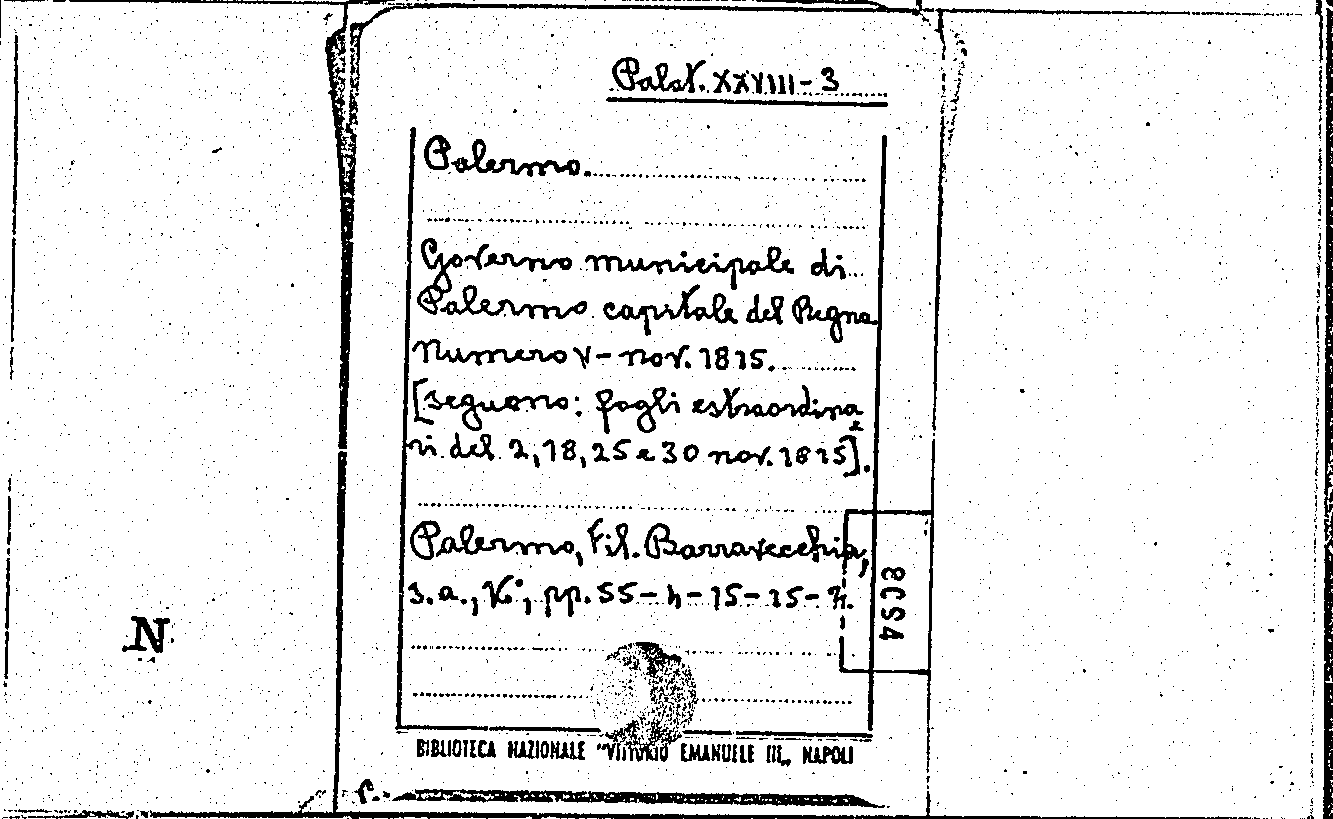 Palat. XXVIII-3
Palermo.
Governo municipale di
Palermo capitale del Regno
Numero V - nov. 1815.
[seguono: fogli estraordina
ri del 2, 18, 25 e 30 nov. 1815].
Palermo, Fil. Barravecchia,
s.a., pp. 55-4-15-15-
8CS4
N
BIBLIOTECA NAZIONALE "VITTORIO EMANUELE III„ NAPOLI